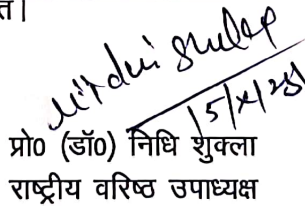 त।
Nidhi Shukla
15/x/25
प्रो० (डॉ०) निधि शुक्ला
राष्ट्रीय वरिष्ठ उपाध्यक्ष